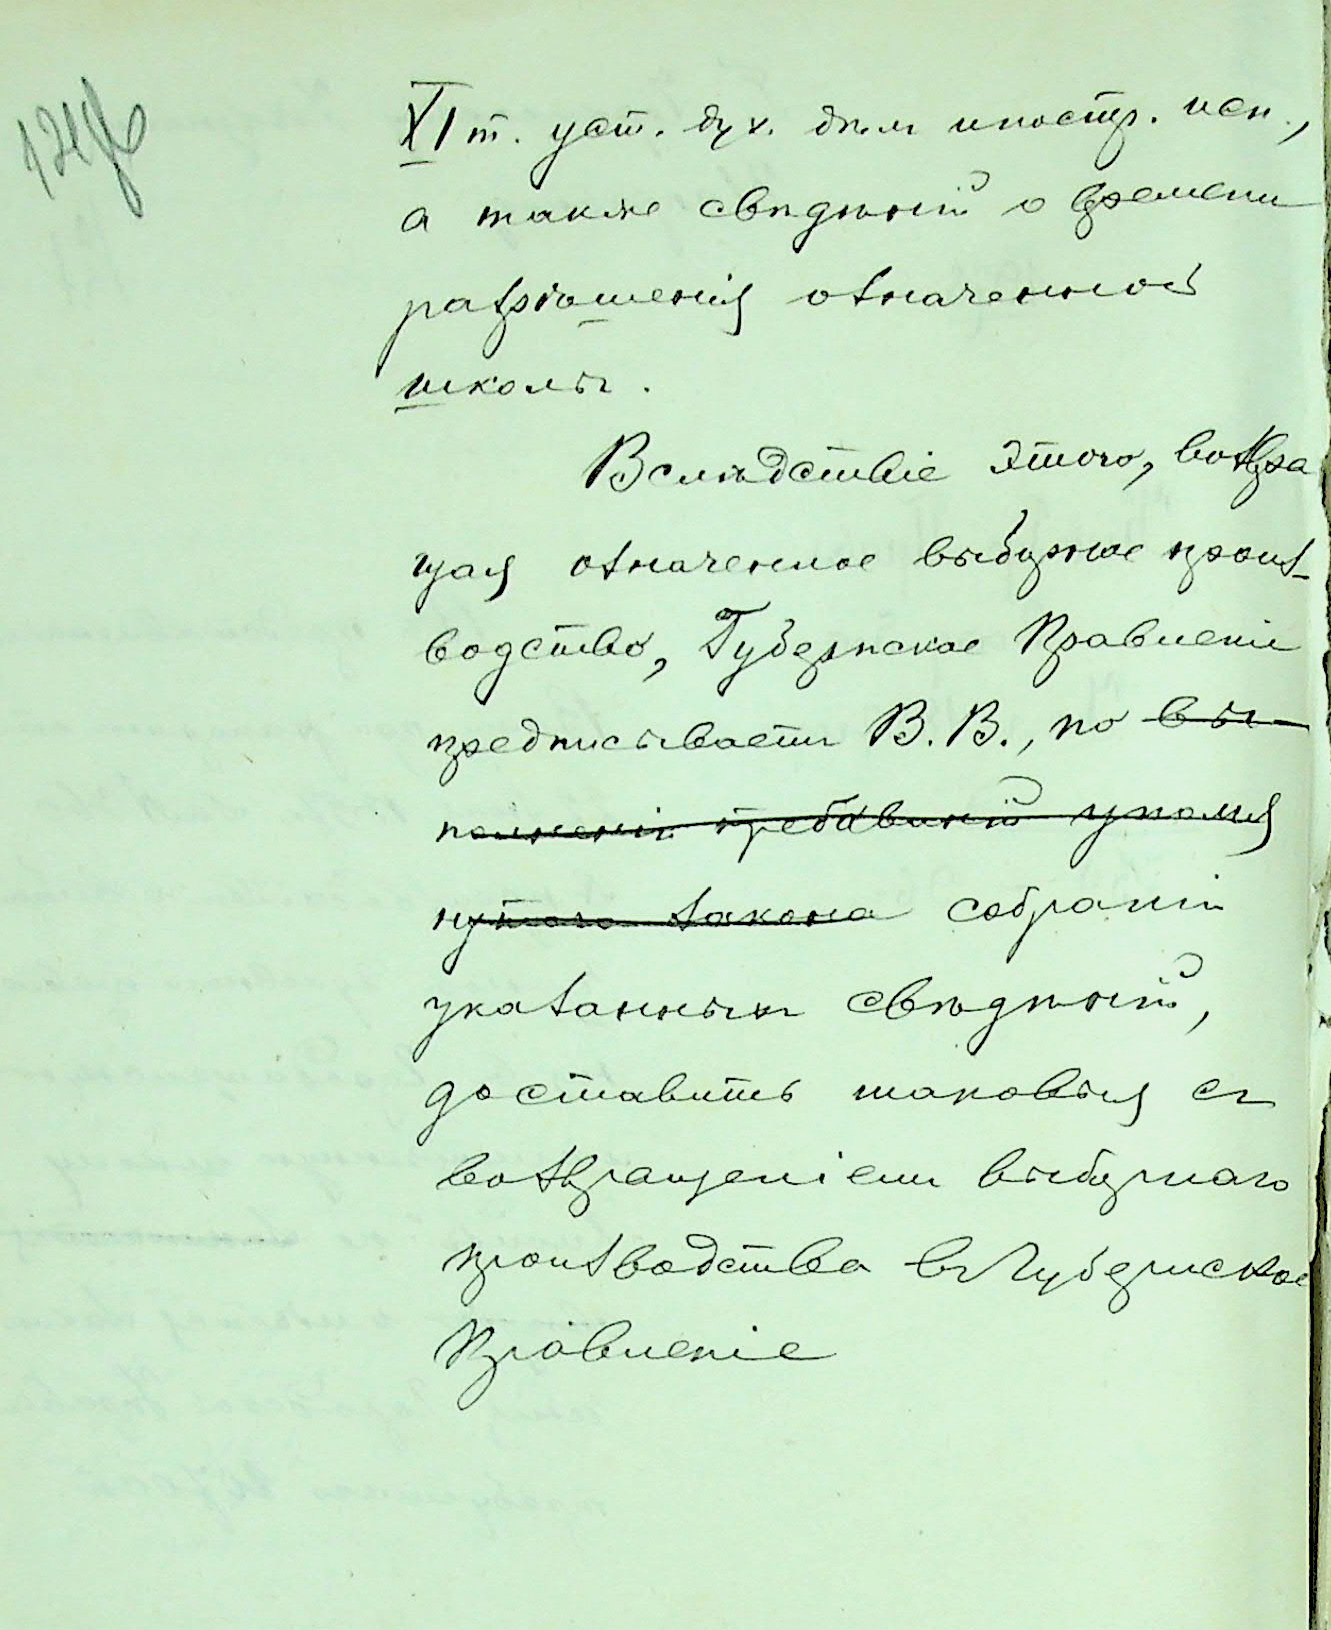 XI т. уст. дух. дѣлъ иностр. исп.,
а также свѣдѣній о времени
разрѣшенія означенной
школы.
Вслѣдствіе этого, возвра
щая означенное выборное произ-
водство, Губернское Правленіе
предписываетъ В. В., по вы
полненіи требованій упомя
нутаго закона собраніи
указанныхъ свѣдѣній,
доставить таковыя съ
возвращеніемъ выборнаго
производства въ Губернское
Правленіе